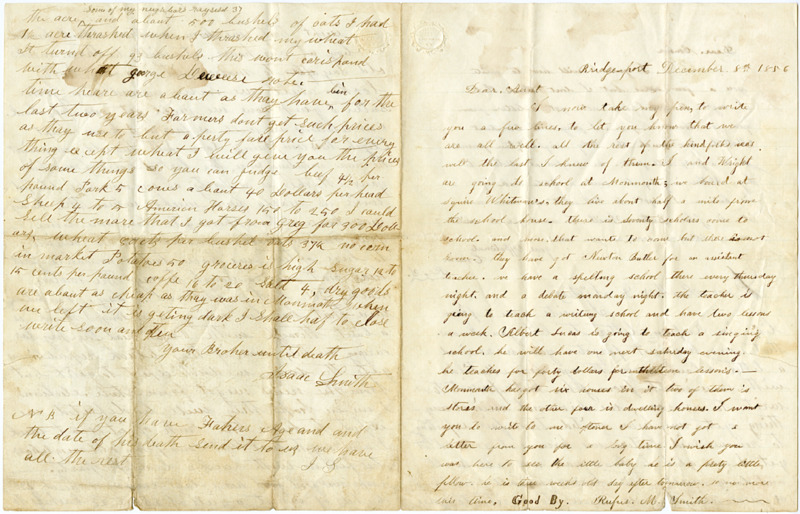 Som of my neighbors raysed 37
the acre, and about 500 bushel of oats I had
1 acre thrashed when I thrashed my wheat
It turnd off 93 bushels this wont corispond
with what george Deweese wote.
time heare are about as they have bin for the
last two years Farmers dont get such prices
as they use to but a perty fare price for every
thing except wheat I will give you the prices
of some things so you can judge beef 4½ per
pound Pork 5 cows about 40 Dollars per head
Sheep 4 to 5 American Horses 150 to 250 I could
sell the mare that I got from Greg for 300 Doll
ars wheat per bushel oats 37½ no corn
in market Potatoes 50 groceries is high Sugar 12 to
15 cents per pound coffe 16 to 20 salt 4, dry goods
are about as cheap as they was in Monmouth when
you left it is geting dark I shall haf to close
write soon and
Your Brother until death
Isaac Smith
N B if you have Fathers Age and and
the date of his death send it to us we have
all the rest
I S
Bridgeport December 8th 1856
Dear Aunt
I now take my pen to write
you a few lines. to let you know that we
are all well. all the rest of the kindfolks was
well the last I knew of them. I and Wright
are going to school at Monmouth; we board at
squire Whitmans. they live about half a mile from
the school house. there is seventy scholars come to
school. and more that wants to come but there isent
room. they have got Newton Butler for an assistent
teacher. we have a spelling school there every thursday
night. and a debate monday night. the teacher is
going to teach a writing school and have two lessons
a week. Albert Lucas is going to teach a singing
school. he will have one next saturday evening.
he teaches for forty dollars for thirteen lessons. —
Monmouth has got six houses in it two of them is
stores. and the other four is dwelling houses. I want
you to write to me oftener I have not got a
letter from you for a long time I wish you
was here to see the little baby he is a pretty little
fellow. he is three weeks old day after tomorrow. no more
this time. Good By. Rufus. M. Smith.